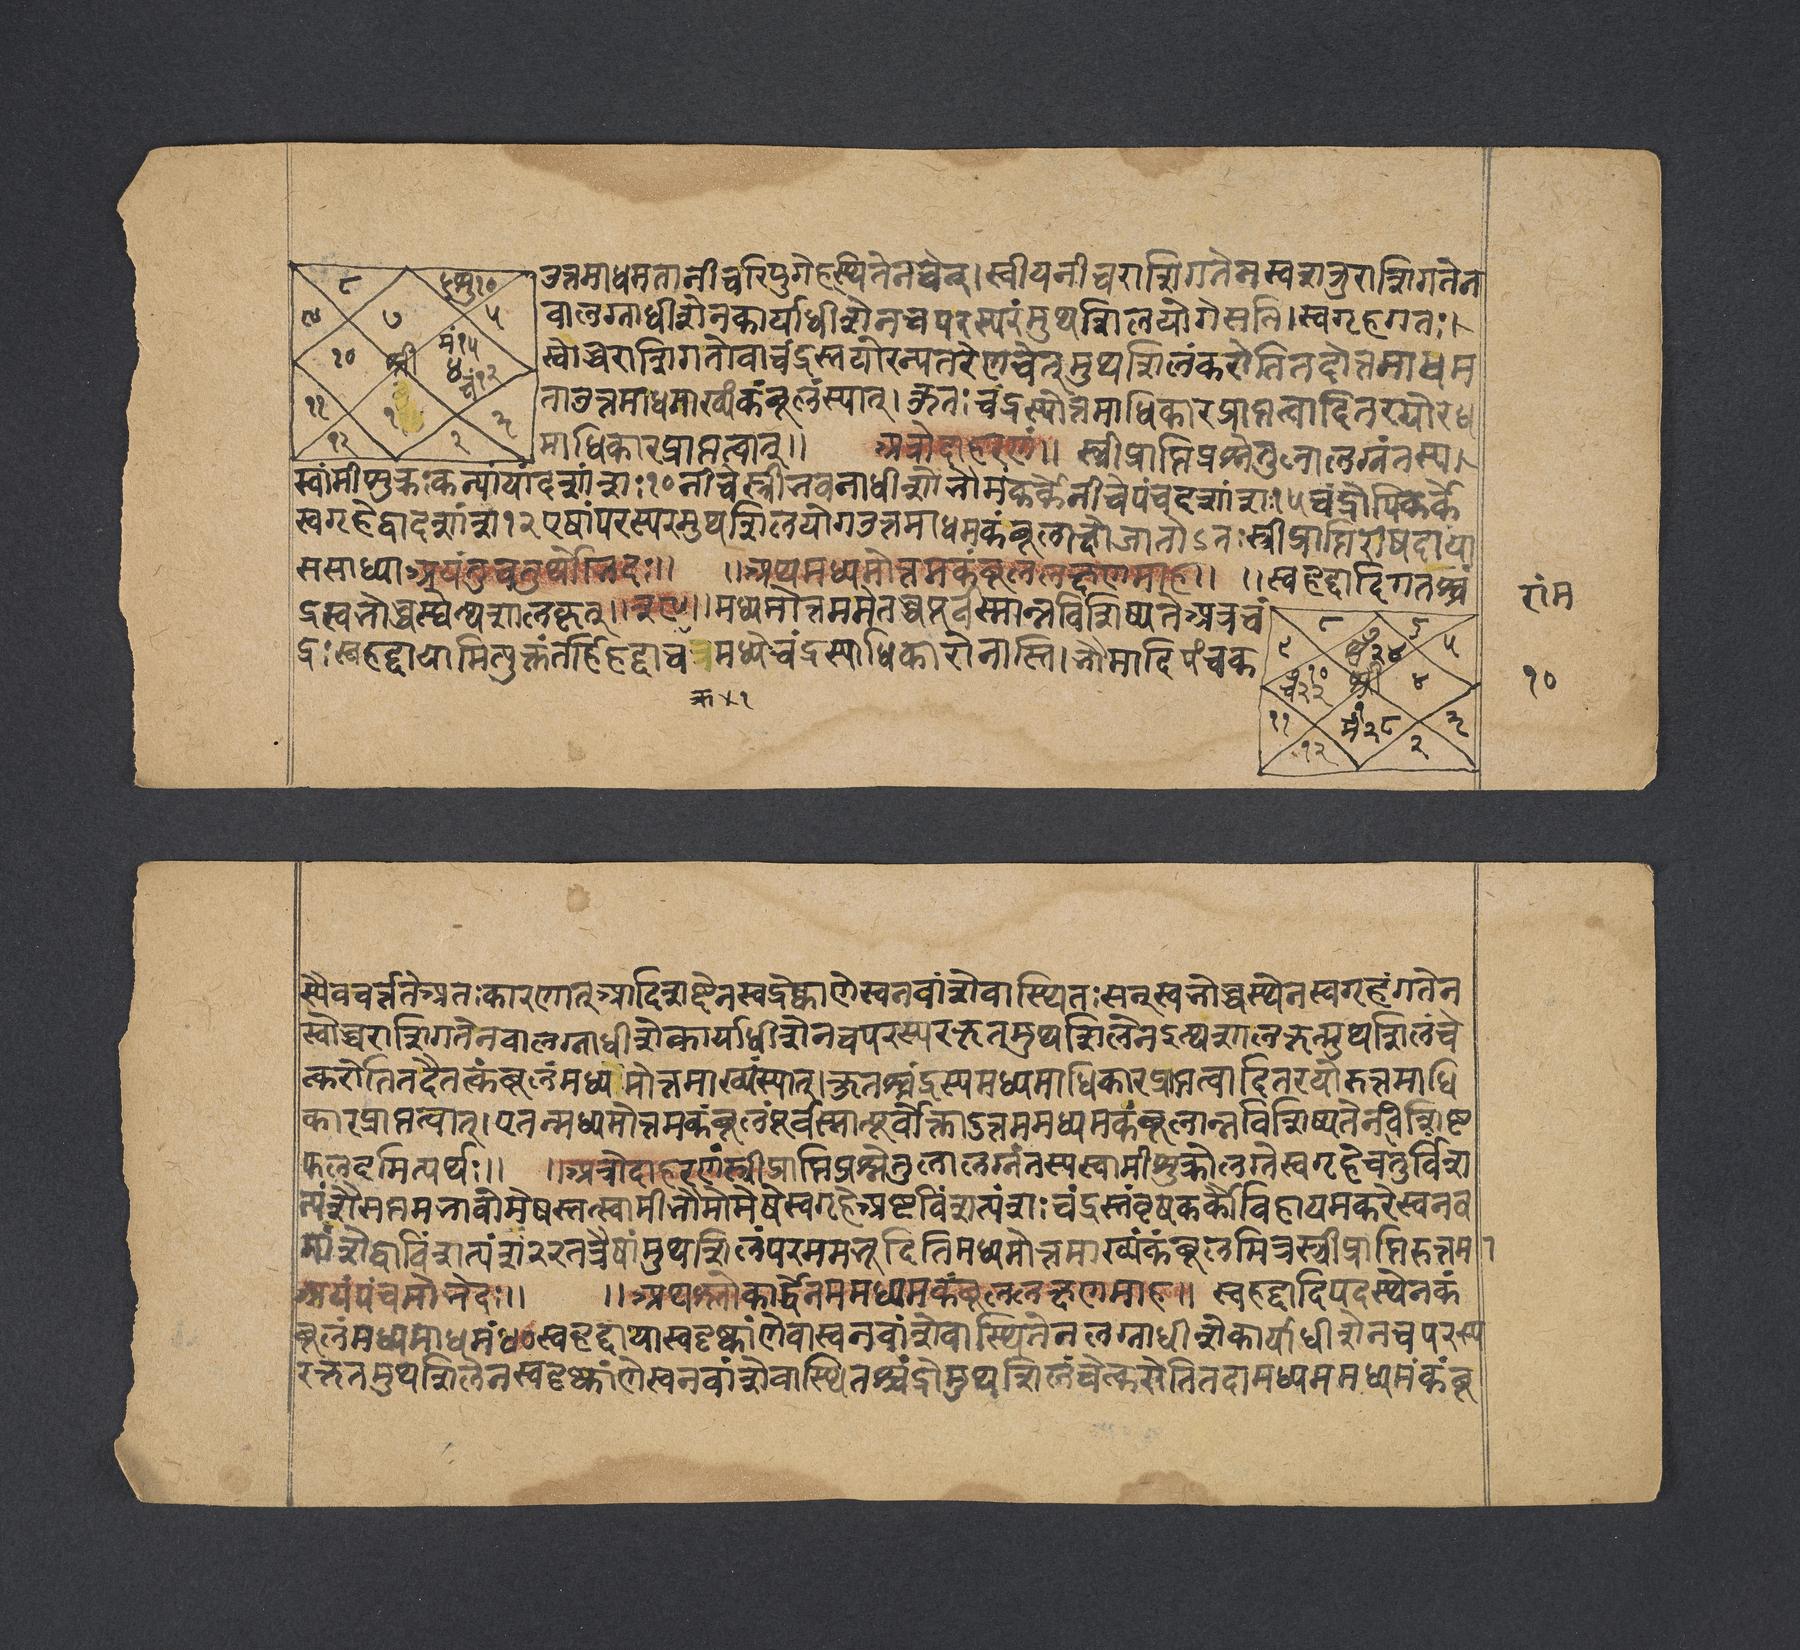 उत्तमाधमतानीचरिपुगेहस्थितेनचेत्।स्वीयनीचराशिगतेनस्वशत्रुराशिगतेन
वालग्नाधीशेनकार्याधीशेनचपरस्परंमुथशिलयोगेसति।स्वगृहगतः।
स्वोच्चराशिगतोवाचंद्रस्तयोरन्यतरेणचेत्मुथशिलंकरोतितदोत्तमाधम
ताउत्तमाधमाख्यंकंबूलंस्यात्।कुतःचंद्रस्योत्तमाधिकारप्राप्तत्वादितरयोरध
माधिकारप्राप्तत्वात्।। अत्रोदाहरणं।। स्त्रीप्राप्तिप्रश्नेतुलालग्नंतस्य।
स्वामीशुक्रःकन्यायांदशांशः१०नीचेस्त्रीभवनाधीशोभौमःकर्केनीचेपंचदशांशः१५चंद्रोपिकर्के
स्वगृहेद्वादशांश१२एषांपरस्परमुथशिलयोगउत्तमाधमकंबूलाख्योजातोऽतःस्त्रीप्राप्तिरोषदाया
ससाध्याअयंतुचतुर्थोभेदः।। ।।अथमध्यमोत्तमकंबूललक्षणमाह।। ।।स्वहद्दादिगतश्चं
द्रस्वभोच्चस्थेत्थशालकृत्।। ।।मध्यमोत्तममेतच्चपूर्वस्मान्नविशिष्यतेअत्रचं
द्रःस्वहद्दायामित्युक्तंतर्हिहद्दाचक्रमध्येचंद्रस्याधिकारोनास्ति।भौमादिपंचक
क्र४१
राम
१०
८
७
५
९
१०
श्री
मं१५
४
चं१२
११
१
१२
२
३
८
७
६
५
९
चं२२
१०
श्री
४
११
मं२८
१२
२
३
स्यैववर्त्ततेअतःकारणात्आदिशब्देनस्वद्रेष्काणेस्वनवांशेवास्थितःसन्स्वभोच्चस्थेनस्वगृहंगतेन
स्वोच्चराशिगतेनवालग्नाधीशेकार्याधीशेनचपरस्परकृतमुथशिलेनऽत्थशालकृन्मुथशिलंचे
त्करोतितदैतत्कंबूलंमध्यमोत्तमाख्यंस्यात्।कुतश्चंद्रस्यमध्यमाधिकारप्राप्तत्वादितरयोरुत्तमाधि
कारप्राप्तत्वात्।एतन्मध्यमोत्तमकंबूलंपूर्वस्मात्पूर्वोक्ताऽत्तममध्यमकंबूलान्नविशिष्यतेनविशिष्ट
फलदमित्यर्थः।। ।।अत्रोदाहरणंस्त्रीप्राप्तिप्रश्नेतुलालग्नंतस्यस्वामीशुक्रोलग्नेस्वगृहेचतुर्विंश
त्यंशेसप्तमभावोमेषस्तत्स्वामीभौमोमेषेस्वगृहेअष्टविंशत्यंशः।चंद्रस्तुंवृषकर्कौविहायमकरेस्वनव
मांशेद्वाविंशत्यंशः२२तत्रैषांमुथशिलंपरममभूदितिमध्यमोत्तमाख्यंकंबूलमित्रस्त्रीप्राप्तिरुत्तमा
अयंपंचमोभेदः।। ।।अथश्लोकार्द्धेनममध्यमकंबूललक्षणमाह।। स्वहद्दादिपदस्थेनकं
बूलंमध्यमाधमं।४०स्वहद्दायास्वदृष्काणेवास्वनवांशेवास्थितेनलग्नाधीशेकार्याधीशेनचपरस्प
रकृतमुथशिलेनस्वदृष्काणेस्वनवांशेवास्थितश्चंद्रोमुथशिलंचेत्करोतितदामध्यममध्यमंकंबू